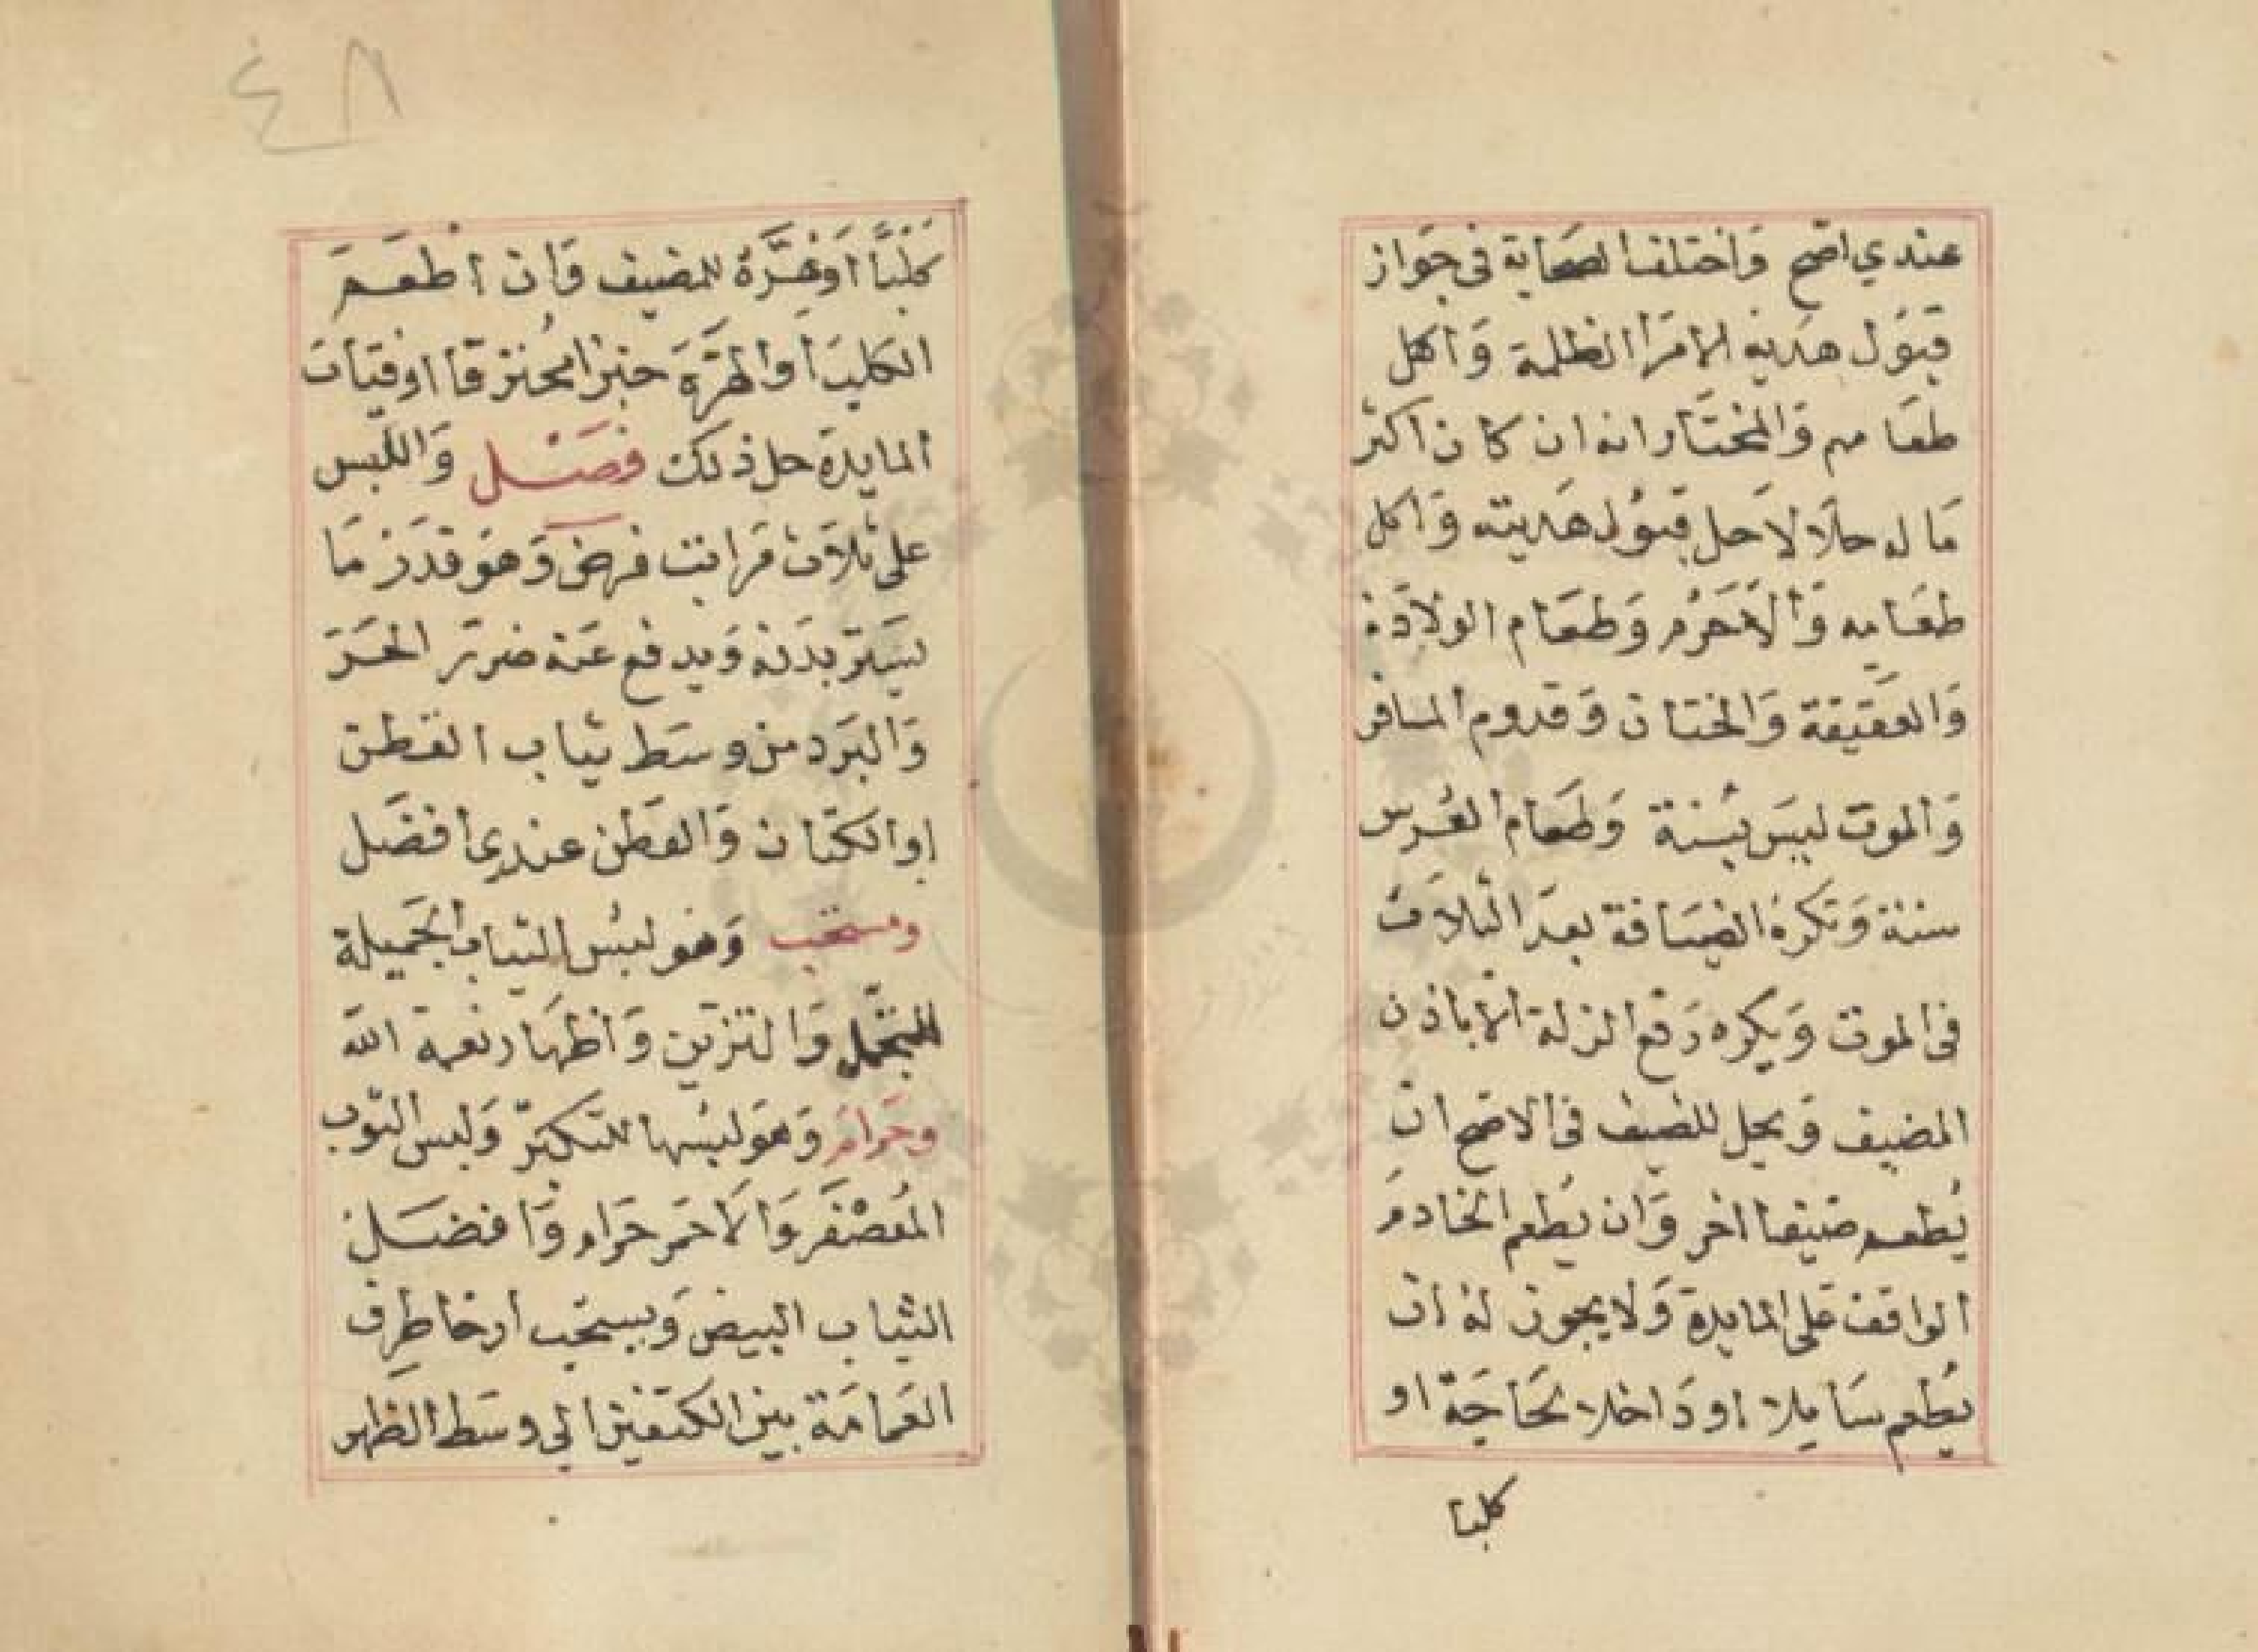 عندي اصح وَاختلف الصحَابة فى جوَاز
قبوُل هدَية الامَرا الظلمة وَاكل
طعَامهم وَالمختَار انه ان كان اكثر
مَا له حلَالا حل قبوُل هَديته وَاكل
طعَامِه وَالا حَرُم وَطعَام الولادَة
وَالعقَيقة وَالختان وَقدوم المسافر
وَالموت ليسَ بسُنة وَطعَام العُرس
سنة وَتكرهُ الضيَافة بعدَ الثلاث
فى الموت وَيكره رَفع الزلة الا باذن
المضيف وَيحل للضيف فى الاصح ان
يُطعم ضَيفا اخر وَان يُطعم الخادمَ
الواقف عَلى المايدة وَلا يجوز لهُ ان
يُطعم سَايلا او دَاخلا لحَاجَة او
كلبا
٤٨
كَلْبًا اَوْ هِرَّةً للمضيف فَان اطعَمَ
الكلبَ اَو الهِرَّةَ خبزا مُحترقا او فتات
المايدة حل ذلك فصَل وَاللبس
على ثلاث مَراتب فرض وَهوَ قدَر مَا
يسَتر بدَنه وَيدفع عَنه ضررَ الحَرّ
وَالبَرد من وسَط ثياب القطن
او الكتان وَالقطن عندي افضَل
ومستحب وَهو لبسُ الثياب الجَميلة
للتجمّل وَالتزين وَاظهَار نعمة الله
وحَرَام وَهوَ لبسُها للتكبّر وَلبس الثوب
المُعصْفَر وَالاحمَر حَرام وَافضَل
الثياب البيض وَيستحب ارخا طرف
العَمامَة بين الكتفين الى وسَط الظهر